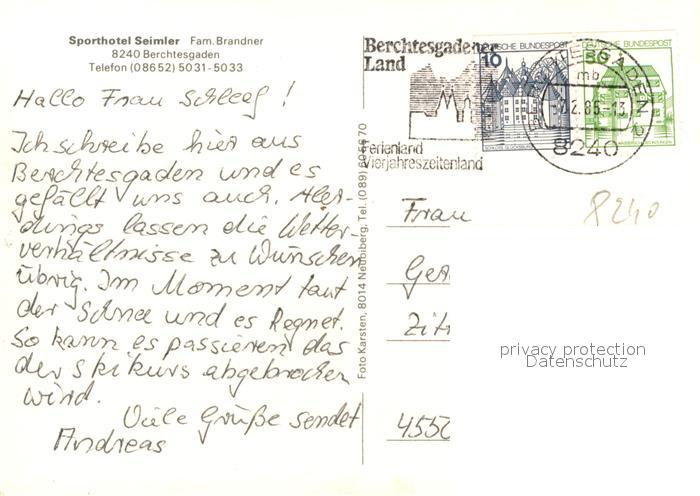 Sporthotel Seimler Fam. Brandner
8240 Berchtesgaden
Telefon (08652) 5031-5033
Hallo Frau Schleef !
Ich schreibe hier aus
Berchtesgaden und es
gefällt uns auch. Aller-
dings lassen die Wetter-
verhältnisse zu Wünschen
übrig. Im Moment taut
der Schnee und es Regnet.
So kann es passieren das
der skikurs abgebrochen
wird.
Viele Grüße sendet
Andreas
Foto Karsten, 8014 Neubiberg, Tel. (089)
Berchtesgadener
Land
Ferienland
Vierjahreszeitenland
10
DEUTSCHE BUNDESPOST
50
DEUTSCHE BUNDESPOST
BERCHTESGADEN 2
mb
8240
Frau
8240
455
privacy protection
Datenschutz